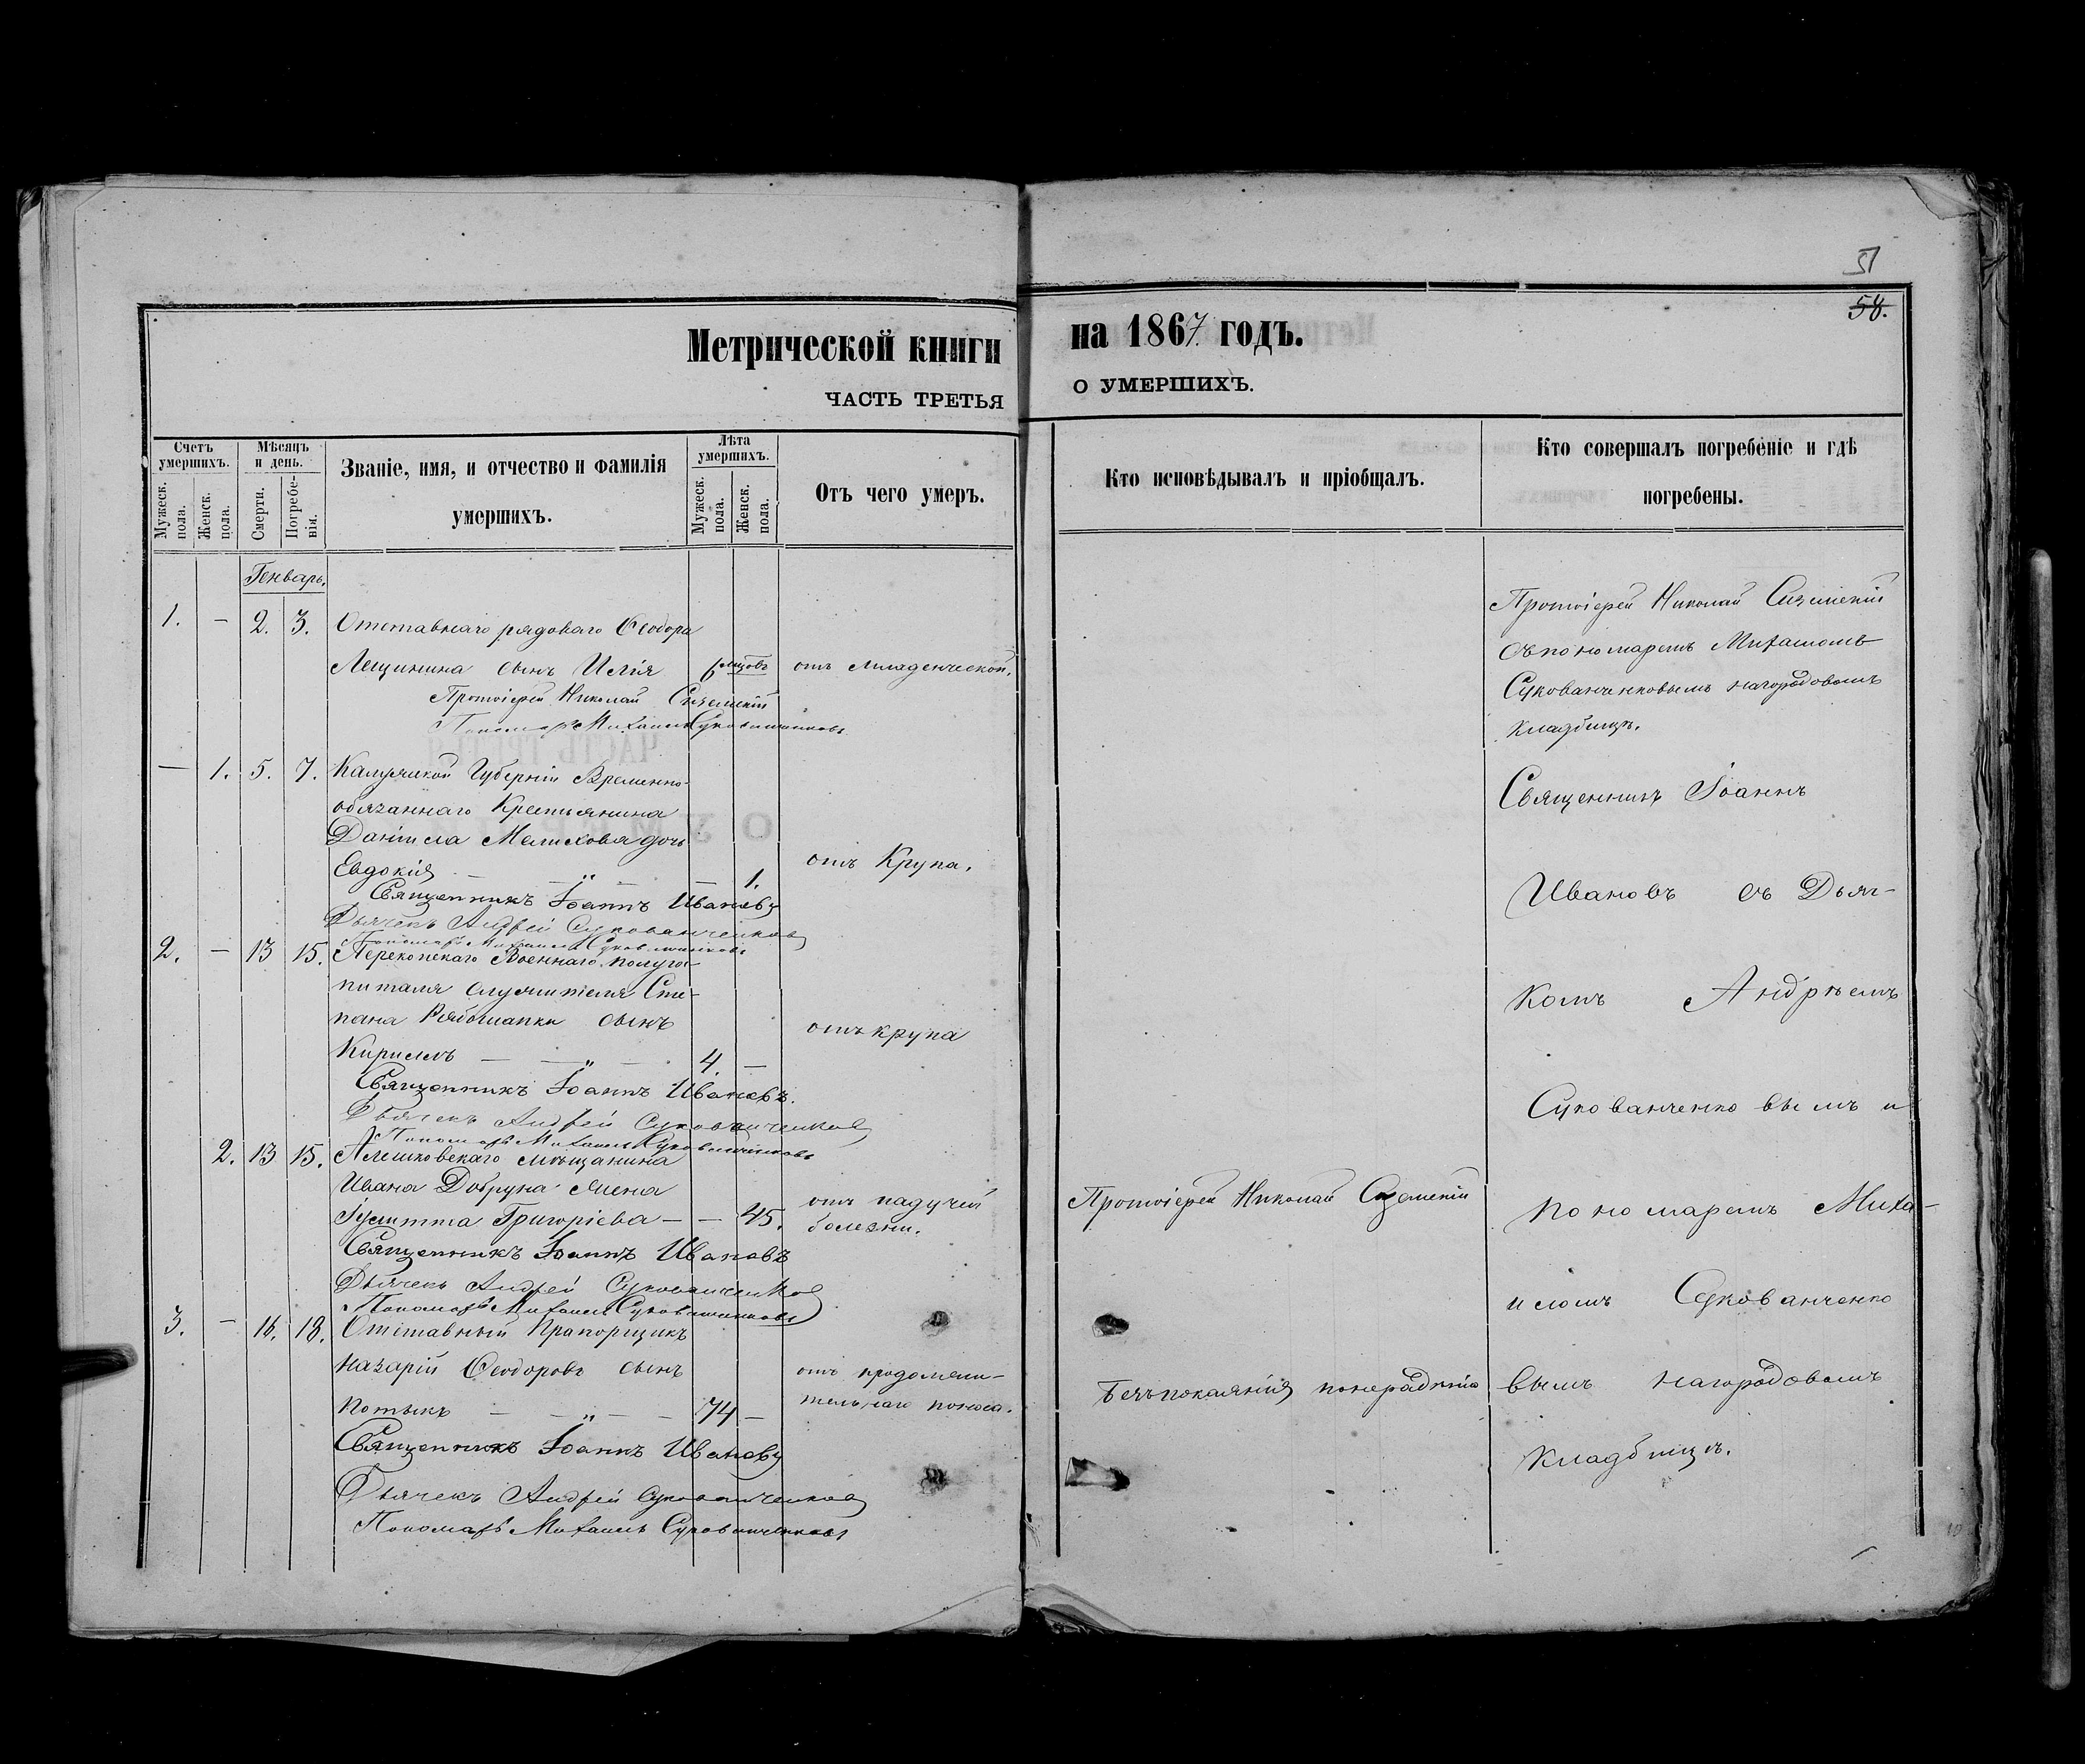 51
58.
Метрической книги на 1867 годъ.
ЧАСТЬ ТРЕТЬЯ О УМЕРШИХЪ.
Счетъ умершихъ.
Мужеск. пола.
Женск. пола.
Мѣсяцъ и день.
Смерти.
Погребенія.
Званіе, имя, и отчество и фамилія
умершихъ.
Лѣта умершихъ.
Мужеск. пола.
Женск. пола.
Отъ чего умеръ.
Кто исповѣдывалъ и пріобщалъ.
Кто совершалъ погребеніе и гдѣ
погребены.
Генварь.
1. — 2. 3. Отставнаго рядоваго Ѳеодора
Лещинина сынъ Илія 6 мцовъ отъ младенческой.
Протоіерей Николай
Пономарь Михаилъ Сукованченковъ
— 1. 5. 7. Калужской Губерніи Временно-
обязаннаго Крестьянина
Даніила Мелихова дочь
Евдокія — „ — — 1. отъ Крупа.
Священникъ Іоаннъ Ивановъ
Дьячекъ Андрей Сукованченковъ
Пономарь Михаилъ Сукованченковъ
2. — 13 15. Перекопскаго Военнаго полугос-
питаля служителя Сте-
пана Рябошапки сынъ
Кириллъ — „ — 4. — отъ крупа
Священникъ Іоаннъ Ивановъ.
Дьячекъ Андрей Сукованченковъ
Пономарь Михаилъ Сукованченковъ
2. 13 15. Алешковскаго мѣщанина
Ивана Добруна жена
Іулитта Григоріева — — 45. отъ падучей
болезни.
Священникъ Іоаннъ Ивановъ
Дьячекъ Андрей Сукованченковъ
Пономарь Михаилъ Сукованченковъ
3. — 16. 18. Отставный Прапорщикъ
Назарій Ѳеодоровъ сынъ
Потыкъ — „ — — 74 — отъ продолжи-
тельнаго поноса.
Священникъ Іоаннъ Ивановъ
Дьячекъ Андрей Сукованченковъ
Пономарь Михаилъ Сукованченковъ
Протоіерей Николай
Безъ покаянія по нерадѣнію
Протоіерей Николай
съ пономаремъ Михаиломъ
Сукованченковымъ на городовомъ
кладбищѣ.
Священникъ Іоаннъ
Ивановъ съ Дьяч-
комъ Андрѣемъ
Сукованченковымъ и
пономаремъ Миха-
иломъ Сукованченко
вымъ на городовомъ
кладбищѣ.